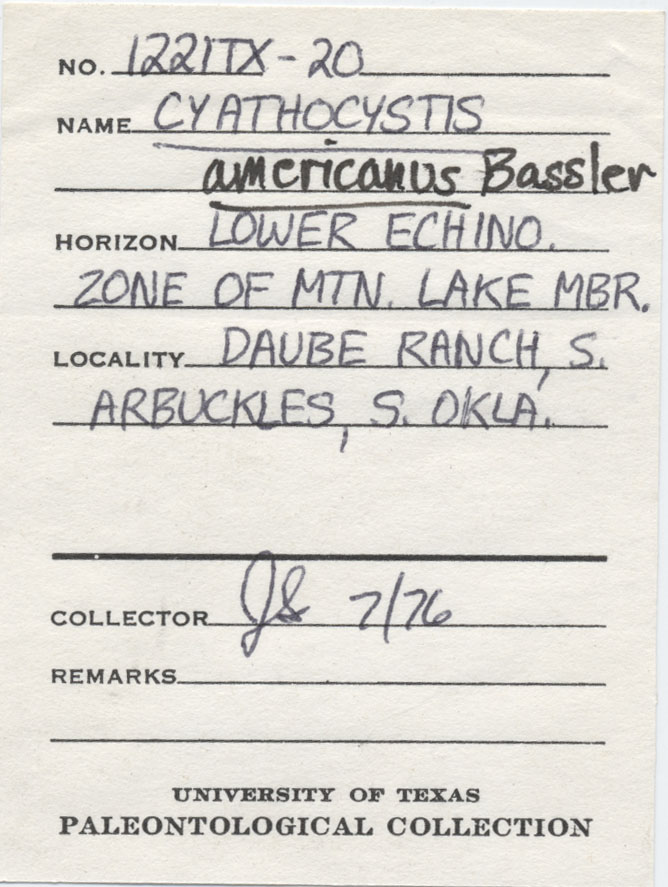 NO. 1221TX-20
NAME CYATHOCYSTIS
americanus Bassler
HORIZON LOWER ECHINO.
ZONE OF MTN. LAKE MBR.
LOCALITY DAUBE RANCH, S.
ARBUCKLES, S. OKLA.
COLLECTOR 7/76
REMARKS
UNIVERSITY OF TEXAS
PALEONTOLOGICAL COLLECTION